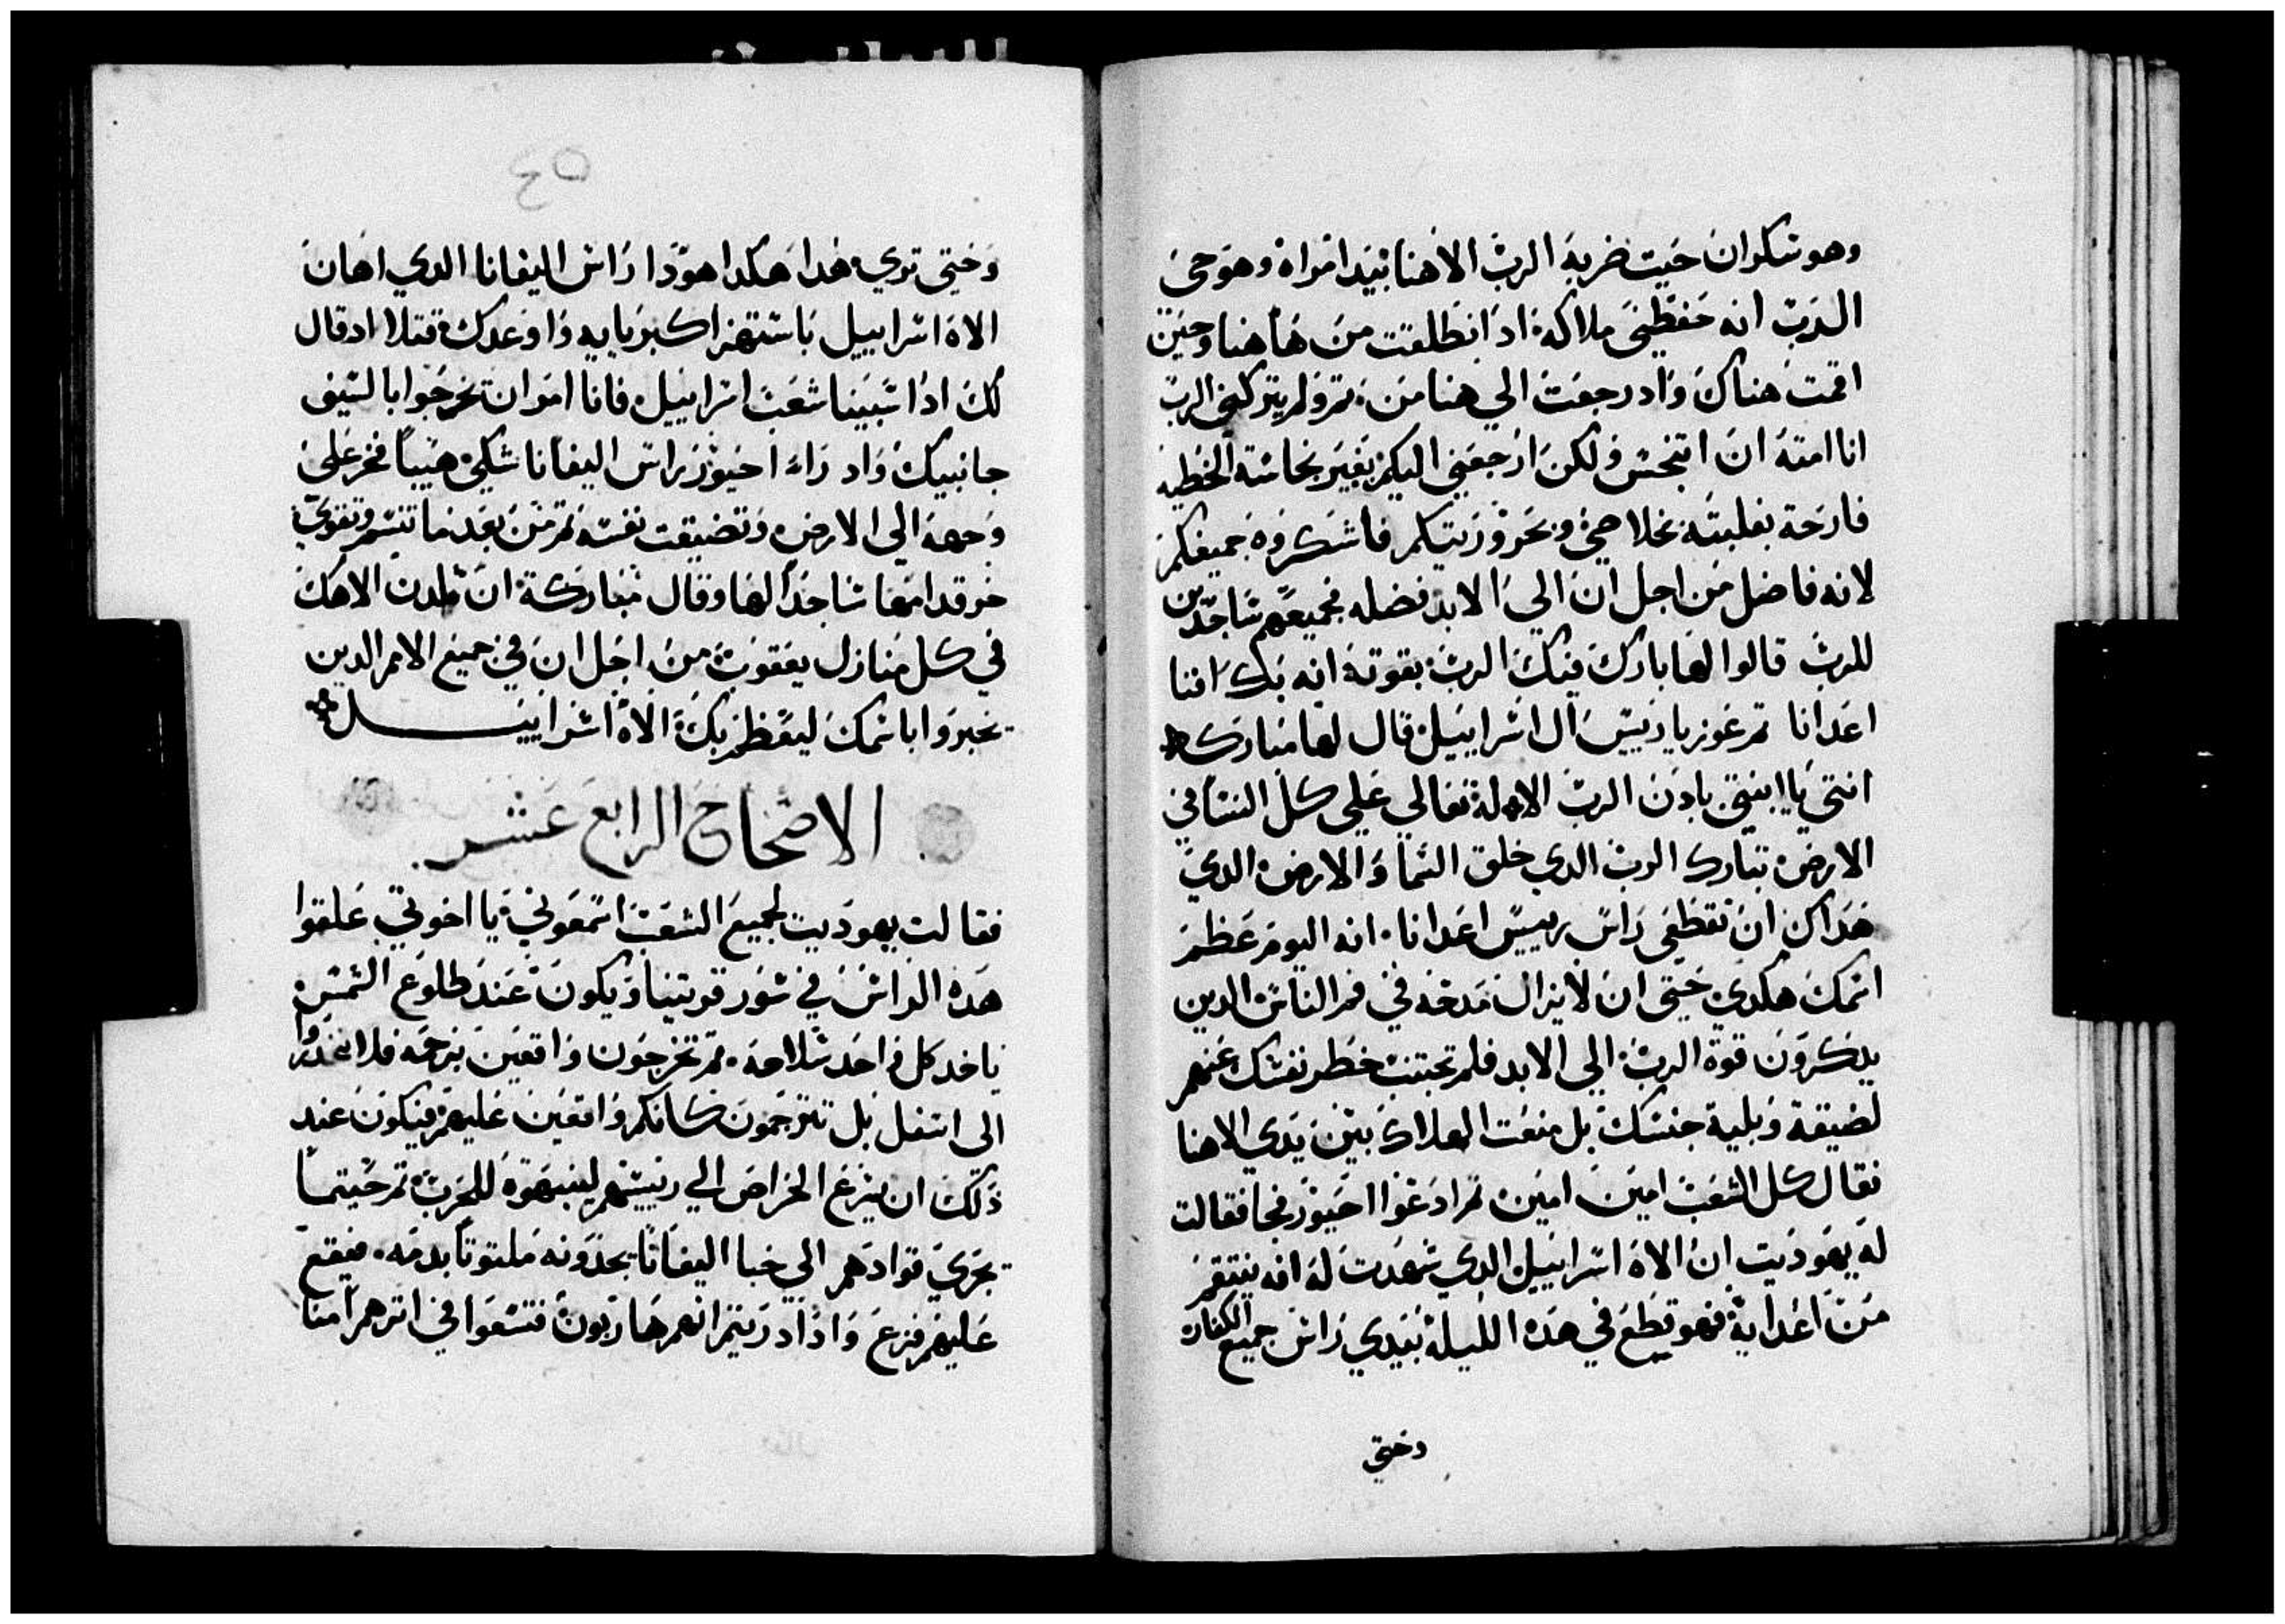 وهو سكران حيت ضربه الرب الاهنا بيد امراه وهو حي
الرب انه حفظني ملاكه اد انطلقت من هاهنا وحين
اقمت هناك واد رجعت الي هنا من تم ولم يتركني الرب
انا امته ان اتنجس ولكن ارجعني اليكم بغير نجاسة الخطيه
فارحة بغلبته بخلاصي وبحروريتكم فاشكروه جميعكم
لانه فاضل من اجل ان الي الابد فضله فجميعهم ساجدين
للرب قالوا لها بارك فيك الرب بقوته انه بك افنا
اعدانا تم عوزيا رييس ال اسراييل قال لها مباركه
انتي يا ابنتي بادن الرب الاله تعالي علي كل النسا في
الارض تبارك الرب الدي خلق السما والارض الدي
هداك ان تقطعي راس رييس اعدانا انه اليوم عظم
اسمك هكدي حتي ان لا يزال مدحه في فم الناس الدين
يدكرون قوة الرب الي الابد فلم تجتنب خطر نفسك عنهم
لضيقة وبلية جنسك بل منعت الهلاك بين يدي الاهنا
فقال كل الشعب امين امين تم ادعوا احيوز فجا فقالت
له يهوديت ان الاه اسراييل الدي شهدت له انه ينتقم
من اعدايه فهو قطع في هده الليلة بيدي راس جميع الكفاره
وحتي
٤٥
وحتي تري هدا هكدا هودا راس اليفانا الدي اهان
الاه اسراييل باستهزا كبريايه واوعدك قتلا اد قال
لك ادا سبينا شعب اسراييل فانا امر ان تخرجوا بالسيف
جانبيك واد راء احيوز راس اليفانا شكي هيبا فخر علي
وجهه الي الارض وتضيقت نفسه تم من بعد ما تنسم وتقوي
خر قدامها ساجدا لها وقال مباركة ان من لدن الاهك
في كل منازل يعقوب من اجل ان في جميع الامم الدين
يخبروا باسمك ليعظم بك الاه اسراييل
الاصحاح الرابع عشر
فقالت يهوديت لجميع الشعب اسمعوني يا اخوتي علقوا
هده الراس في سور قريتنا ويكون عند طلوع الشمس
ياخد كل واحد سلاحه تم تخرجون واقعين بزحمه فلا انحدروا
الي اسفل بل تتزحمون كانكم واقعين عليهم فيكون عند
دلك ان يزع الحراص الي رييسهم لينبهوه للحرب تم حيتما
يجري قوادهم الي خبا اليفانا يجدونه ملتوتا بدمه فيقع
عليهم فزع وادا ادريتم انهم هاربون فتسعوا في اترهم امنا